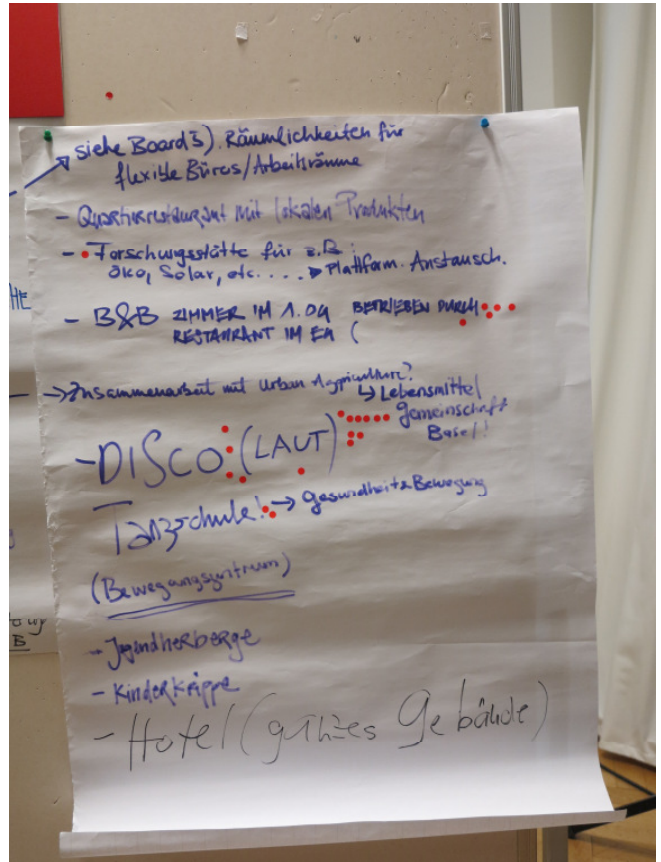 siehe Board 3). Räumlichkeiten für
flexible Büros/Arbeitsräume
- Quartierrestaurant mit lokalen Produkten
- Forschungsstätte für z.B:
öko, Solar, etc.... Plattform. Austausch.
- B&B ZIMMER IM 1.OG BETRIEBEN DURCH
RESTAURANT IM EG (
HE
→ Zusammenarbeit mit Urban Agriculture?
↳ Lebensmittel
gemeinschaft
Basel!
- DISCO (LAUT)
Tanzschule! → Gesundheit & Bewegung
(Bewegungszentrum)
- Jugendherberge
B
- Kinderkrippe
- Hotel (ganzes Gebäude)